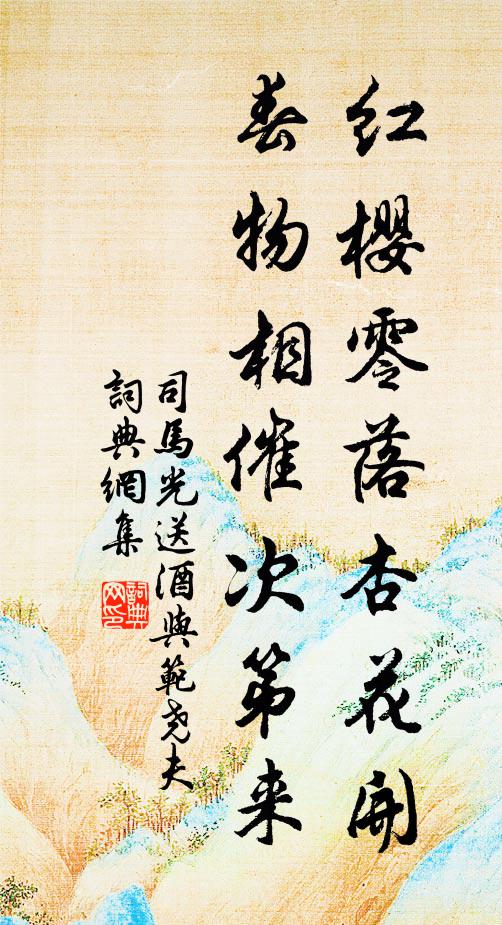 红樱零落杏花開
春物相催次第来
司馬光送酒與範堯夫
詞典網集
詞典网印